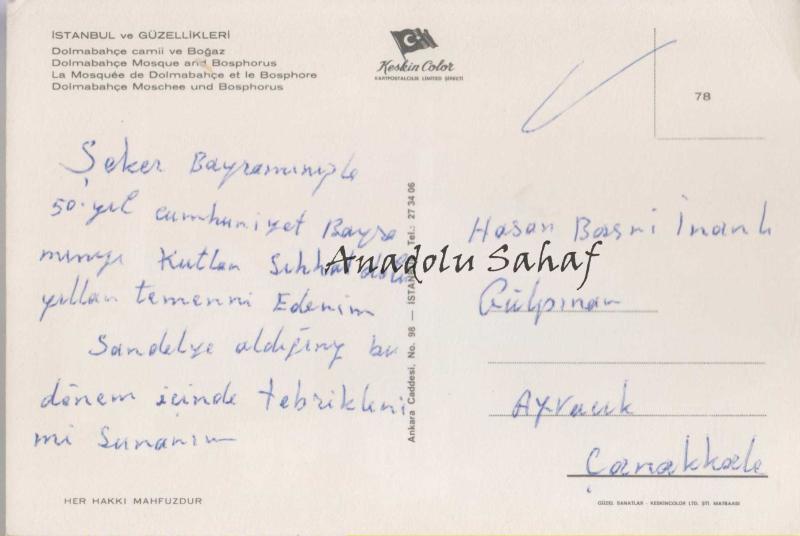 İSTANBUL ve GÜZELLİKLERİ
Dolmabahçe camii ve Boğaz
Dolmabahçe Mosque and Bosphorus
La Mosquée de Dolmabahçe et le Bosphore
Dolmabahçe Moschee und Bosphorus
Keskin Color
KARTPOSTALCILIK LİMİTED ŞİRKETİ
78
Şeker Bayramınızla
50. yıl cumhuriyet Bayra
mınızı Kutlar Sıhhat dolu
yıllar temenni Ederim
Sandelye aldığınız bu
dönem içinde tebrikleri
mi Sunarım
Anadolu Sahaf
Ankara Caddesi, No. 98 — İSTAN Tel.: 27 34 06
Hasan Basri İnanlı
Gülpınar
Ayvacık
Çanakkale
HER HAKKI MAHFUZDUR
GÜZEL SANATLAR - KESKİNCOLOR LTD. ŞTİ. MATBAASI